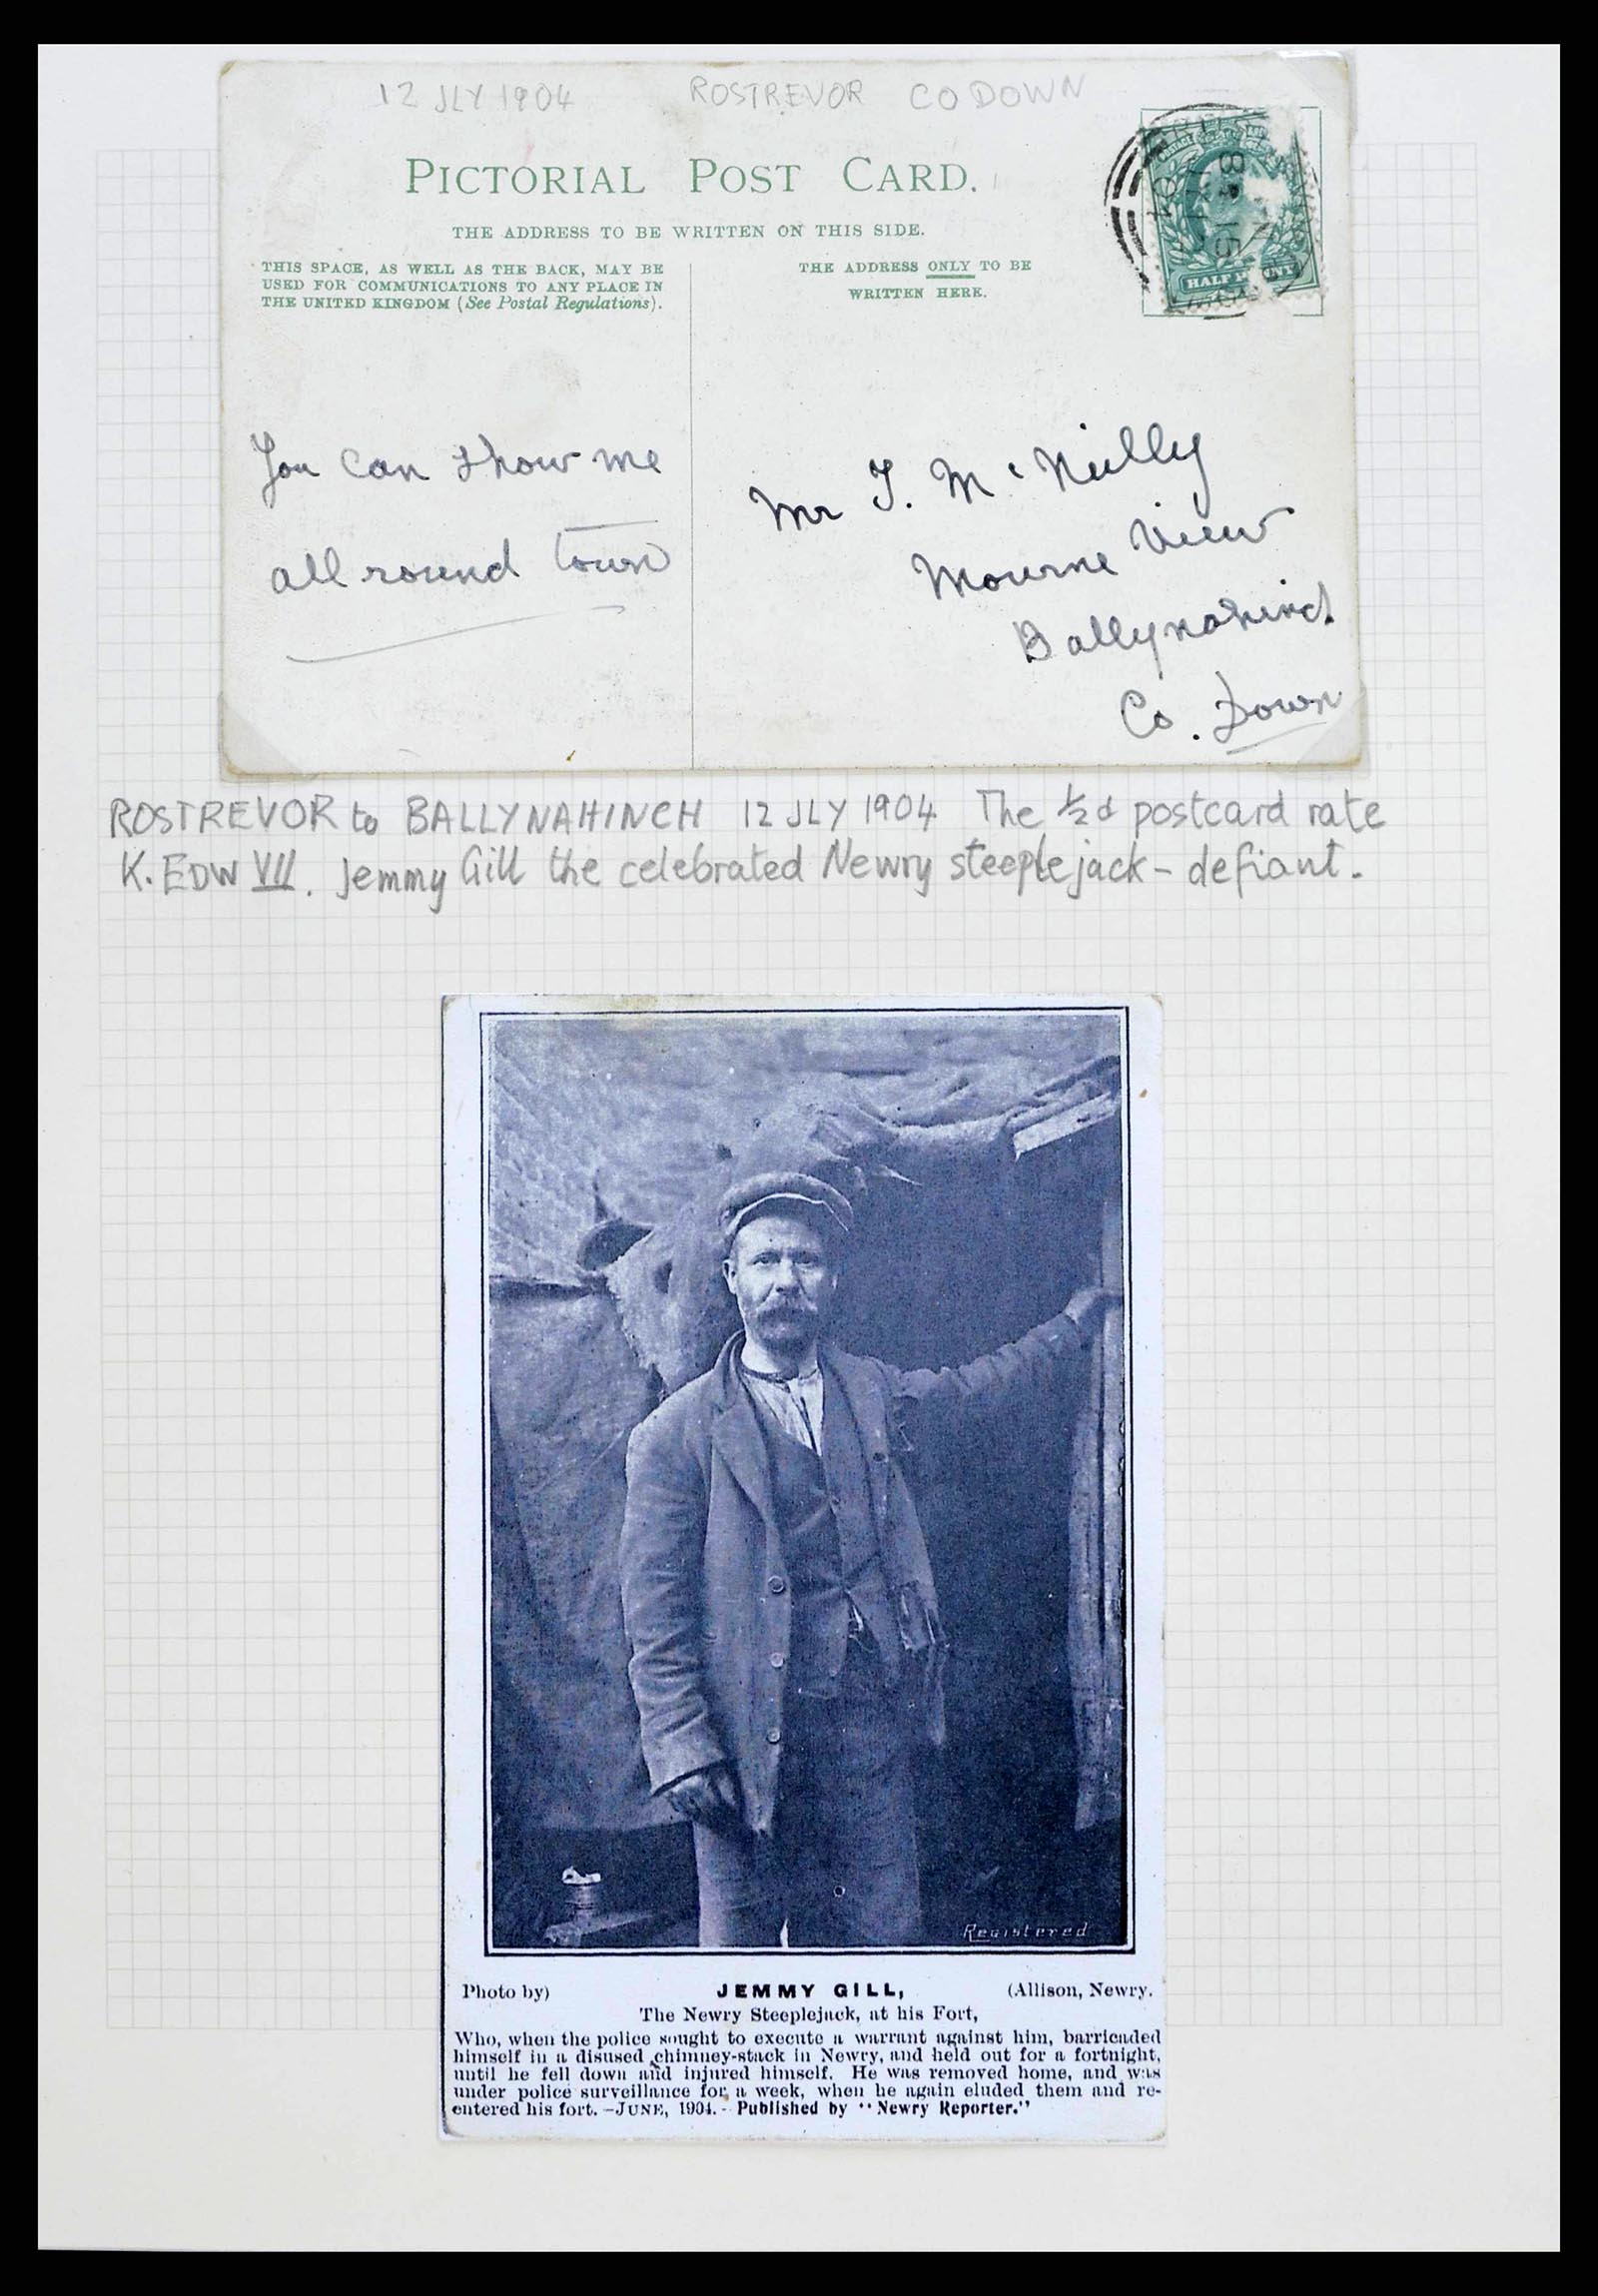 12 JLY 1904 ROSTREVOR CO DOWN
PICTORIAL POST CARD.
THE ADDRESS TO BE WRITTEN ON THIS SIDE.
THIS SPACE, AS WELL AS THE BACK, MAY BE
USED FOR COMMUNICATIONS TO ANY PLACE IN
THE UNITED KINGDOM (See Postal Regulations).
THE ADDRESS ONLY TO BE
WRITTEN HERE.
You can show me
all round town
Mr T. McNully
Mourne View
Ballynahinch
Co. Down
ROSTREVOR to BALLYNAHINCH 12 JLY 1904 The ½d postcard rate
K. EDW VII. Jemmy Gill the celebrated Newry steeplejack - defiant.
Registered
Photo by) JEMMY GILL, (Allison, Newry.
The Newry Steeplejack, at his Fort,
Who, when the police sought to execute a warrant against him, barricaded
himself in a disused chimney-stack in Newry, and held out for a fortnight,
until he fell down and injured himself. He was removed home, and was
under police surveillance for a week, when he again eluded them and re-
entered his fort. —JUNE, 1904. - Published by "Newry Reporter."